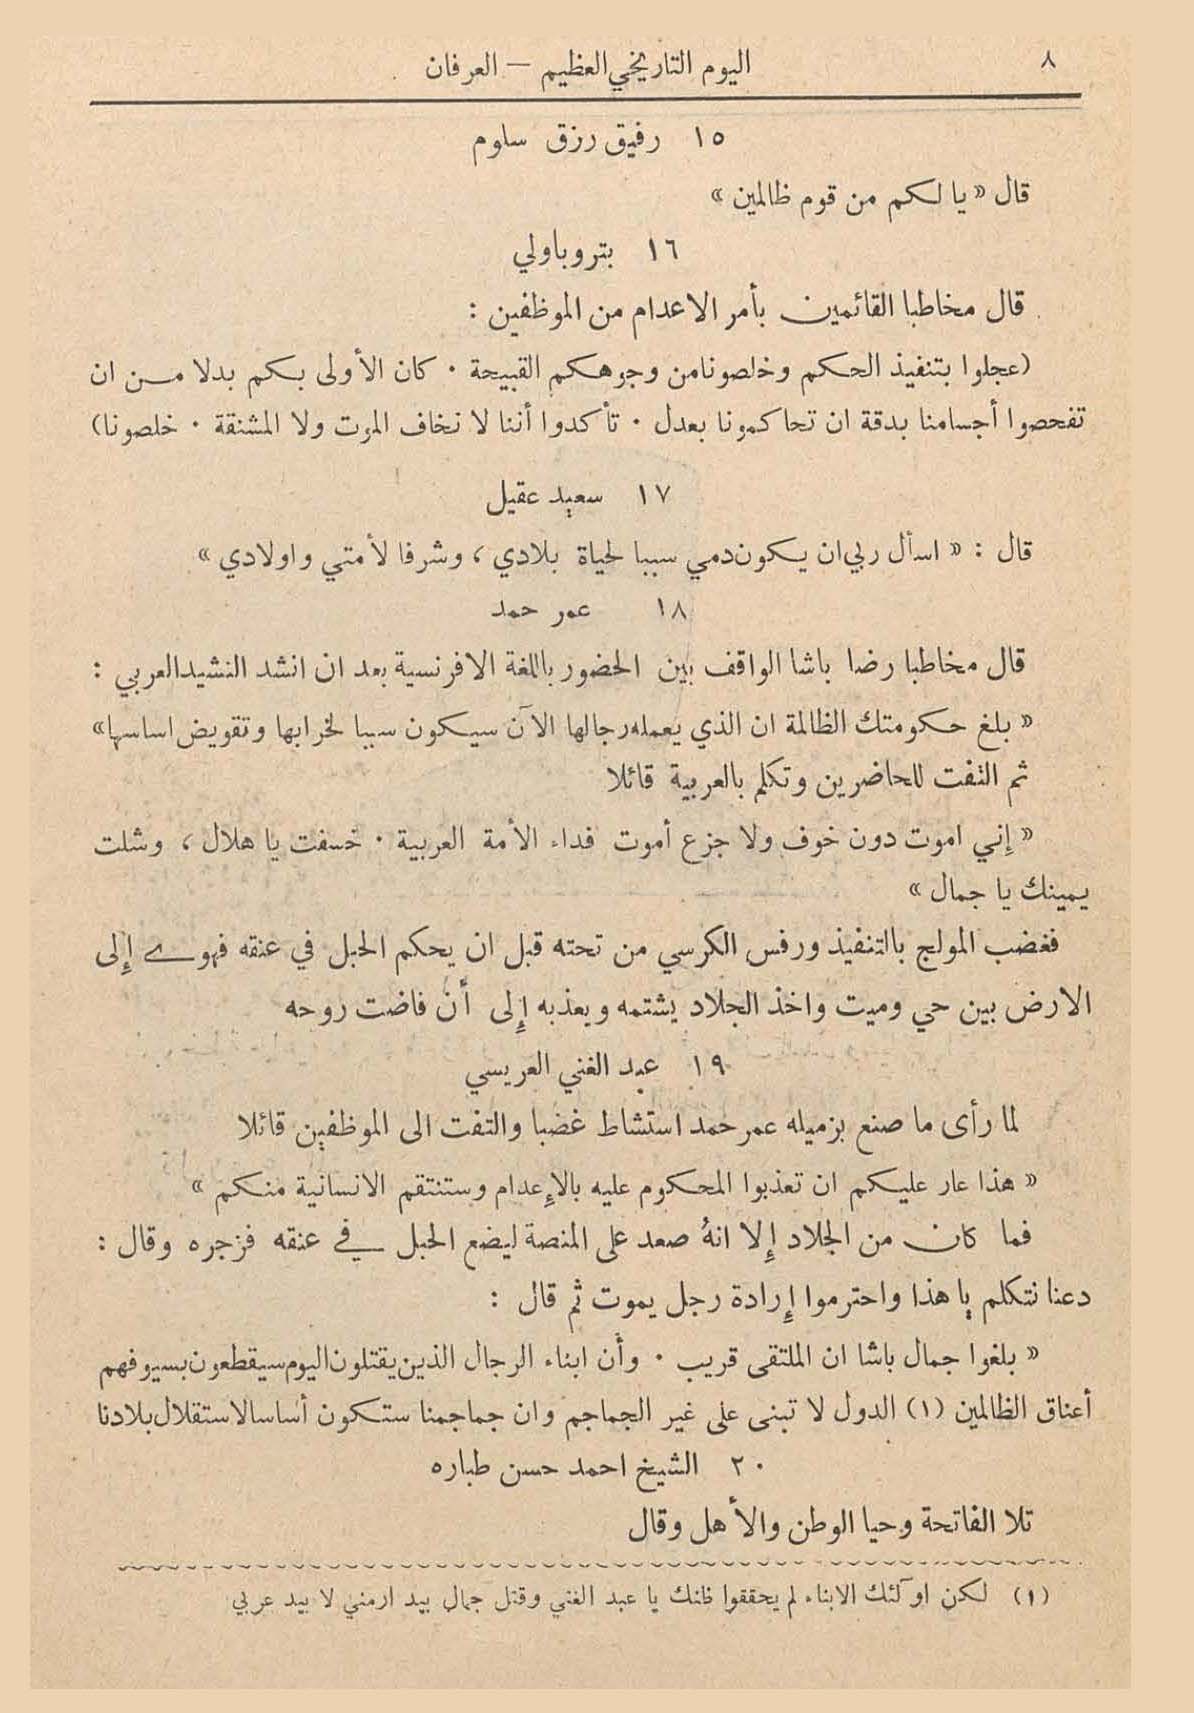 ٨
اليوم التاريخي العظيم — العرفان
١٥ رفيق رزق سلوم
قال « يا لكم من قوم ظالمين »
١٦ بتروباولي
قال مخاطبا القائمين بأمر الاعدام من الموظفين :
(عجلوا بتنفيذ الحكم وخلصونامن وجوهكم القبيحة · كان الأولى بكم بدلا من ان
تفحصوا أجسامنا بدقة ان تحاكمونا بعدل · تأكدوا أننا لا نخاف الموت ولا المشنقة · خلصونا)
١٧ سعيد عقيل
قال : « اسأل ربي ان يكون دمي سببا لحياة بلادي ، وشرفا لأمتي واولادي »
١٨ عمر حمد
قال مخاطبا رضا باشا الواقف بين الحضور باللغة الافرنسية بعد ان انشد النشيد العربي :
« بلغ حكومتك الظالمة ان الذي يعمله رجالها الآن سيكون سببا لخرابها وتقويض اساسها»
ثم التفت للحاضرين وتكلم بالعربية قائلا
« إني اموت دون خوف ولا جزع أموت فداء الأمة العربية · خسفت يا هلال ، وشلت
يمينك يا جمال »
فغضب المولج بالتنفيذ ورفس الكرسي من تحته قبل ان يحكم الحبل في عنقه فهوى إلى
الارض بين حي وميت واخذ الجلاد يشتمه ويعذبه إلى أن فاضت روحه
١٩ عبد الغني العريسي
لما رأى ما صنع بزميله عمر حمد استشاط غضبا والتفت الى الموظفين قائلا
« هذا عار عليكم ان تعذبوا المحكوم عليه بالإعدام وستنتقم الانسانية منكم »
فما كان من الجلاد إلا انهُ صعد على المنصة ليضع الحبل في عنقه فزجره وقال :
دعنا نتكلم يا هذا واحترموا إرادة رجل يموت ثم قال :
« بلغوا جمال باشا ان الملتقى قريب · وأن ابناء الرجال الذين يقتلون اليوم سيقطعون بسيوفهم
أعناق الظالمين (١) الدول لا تبنى على غير الجماجم وان جماجمنا ستكون أساسا لاستقلال بلادنا
٢٠ الشيخ احمد حسن طباره
تلا الفاتحة وحيا الوطن والأهل وقال
(١) لكن اولئك الابناء لم يحققوا ظنك يا عبد الغني وقتل جمال بيد ارمني لا بيد عربي